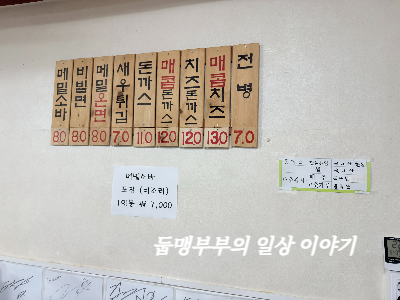 메밀소바 8.0
비빔면 8.0
메밀온면 8.0
새우튀김 7.0
돈까스 11.0
매콤돈까스 12.0
치즈돈까스 12.0
매콤치즈 13.0
전병 7.0
메밀소바
포장 (비조리)
1인분 ₩ 7,000
둡맹부부의 일상 이야기